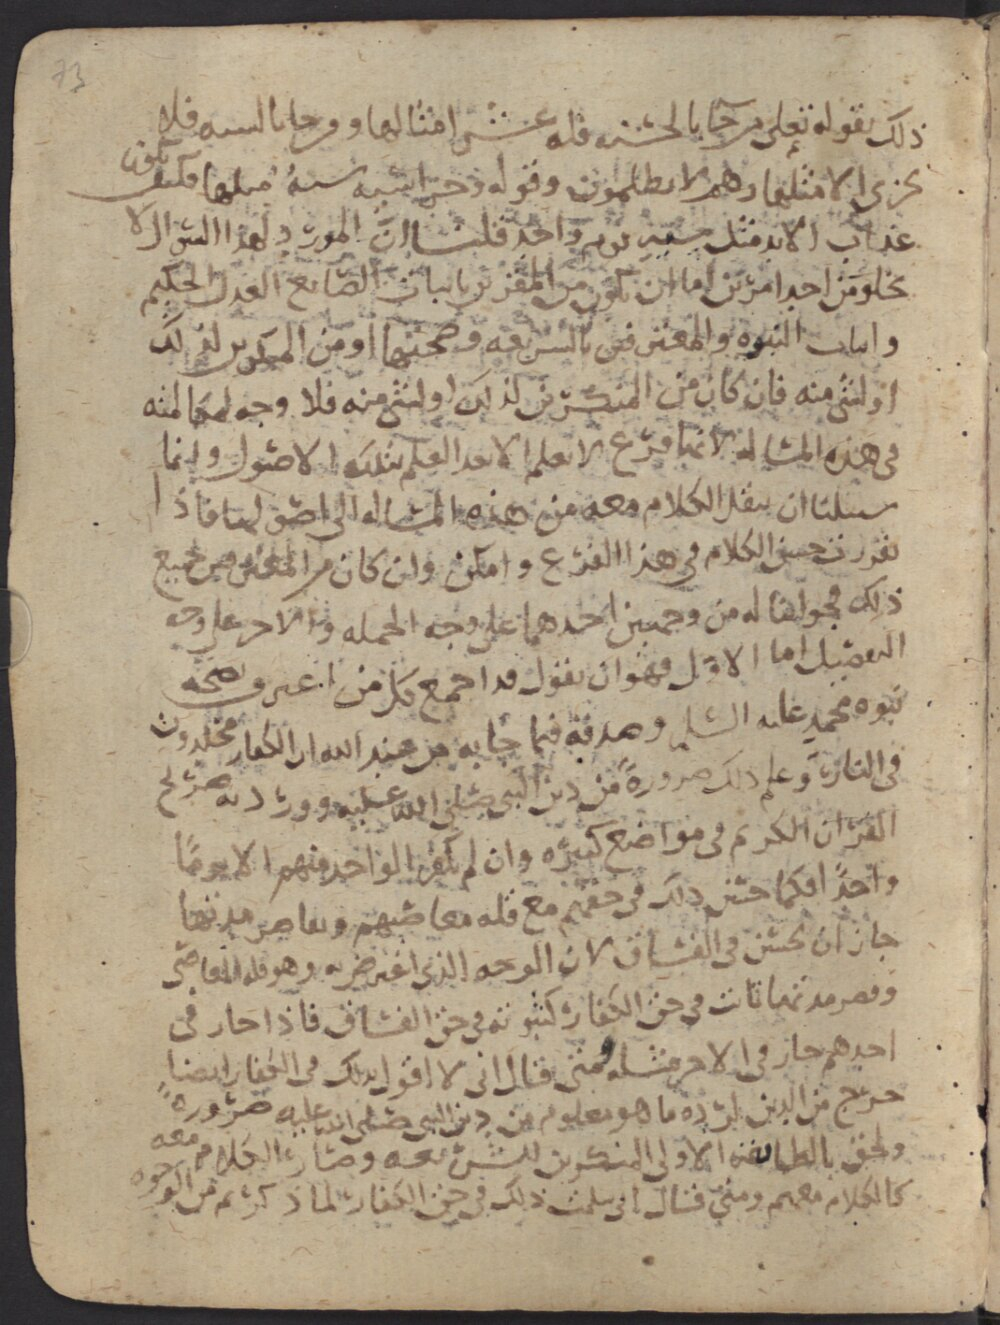 73
ذلك بقوله تعلى من جآ بالحسنه فله عشر امثالها ومن جا بالسيه فلا
يجزى الا مثلها وهم لا يظلمون وقوله وجزا سيه سيئه مثلها فكيف يكون
عذاب الابد مثل سيه واحد قلنا ان المورد لهذا السؤال لا
يخلو من احد امرين اما ان يكون من المقرين باثبات الصانع العدل الحكيم
واثبات النبوه والمعترفين بالشريعه وصحتها او من المنكرين لذلك
او لشي منه فان كان من المنكرين لذلك او لشي منه فلا وجه لمكالمته
في هذه المساله لانها فرع لا يعلم الا بعد العلم بتلك الاصول وانما
سبيلنا ان ننقل الكلام معه من هذه المساله الى اصولها فاذا
تقررت حسن الكلام في هذا الفرع وامكن وان كان من المعترفين بجميع
ذلك فجوابنا له من وجهين احدهما على وجه الجمله والاخر على وجه
التفصيل اما الاول فهو ان نقول قد اجمع كل من اعترف بصحه
نبوه محمد عليه السلم وصدقه فيما جا به من عند الله ان الكفار مخلدون
في النار وعلم ذلك ضرورة من دين النبي صلى الله عليه وورد به صريح
القران الكريم في مواضع كثيره وان لم يكفر الواحد منهم الا يومًا
واحدًا فكما حسن ذلك في حقهم مع قله معاصيهم وتقاصر مدتها
جاز ان يحسن في الفساق لان الوجه الذي اعترض به وهو قله المعاصي
وقصر مدتها ثابت في حق الكفار كثبوته في حق الفساق فاذا جاز في
احدهم جاز في الاخر مثله فمتى قال اني لا اقول بذلك في الكفار ايضا
خرج من الدين لرده ما هو معلوم من دين النبي صلى الله عليه ضرورة
ولحق بالطايفه الاولى المنكرين للشريعه وصار الكلام معه
كالكلام معهم ومتى قال اني سلمت ذلك في حق الكفار لما ذكرتم من الوجوه